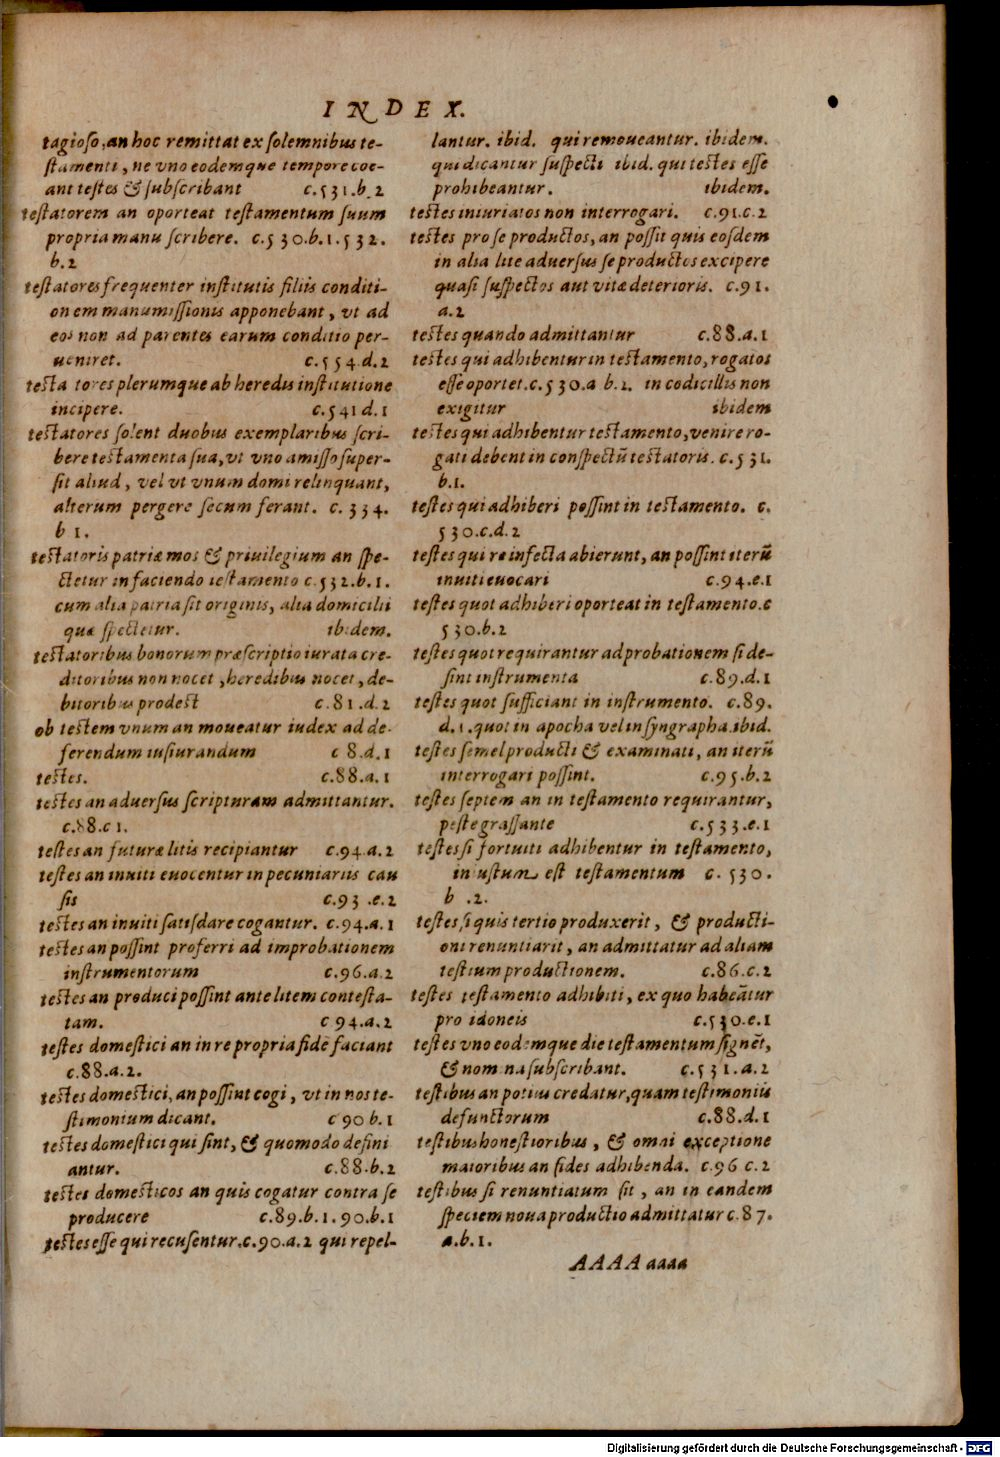 INDEX.
tagioso, an hoc remittat ex solemnibus te-
stamenti, ne vno eodemque tempore coe-
ant testes & subscribant c.531.b.2
testatorem an oporteat testamentum suum
propria manu scribere. c.530.b.1.532.
b.2
testatores frequenter institutis filiis conditi-
onem manumissionis apponebant, vt ad
eos non ad parentes earum conditio per-
ueniret. c.554.d.2
testatores plerumque ab heredis institutione
incipere. c.541 d.1
testatores solent duobus exemplaribus scri-
bere testamenta sua, vt vno amisso super-
sit aliud, vel vt vnum domi relinquant,
alterum pergere secum ferant. c. 334.
b 1.
testatoris patriæ mos & priuilegium an spe-
ctetur in faciendo testamento c.532.b.1.
cum alia patria sit originis, alia domicilii
quæ spectetur. ibidem.
testatoribus bonorum præscriptio iurata cre-
ditoribus non nocet, heredibus nocet, de-
bitoribus prodest c.81.d.2
ob testem vnum an moueatur iudex ad de-
ferendum iusiurandum c 8.d.1
testes. c.88.a.1
testes an aduersus scripturam admittantur.
c.88.c 1.
testes an futuræ litis recipiantur c.94.a.2
testes an inuiti euocentur in pecuniariis cau
sis c.93.e.2
testes an inuiti satisdare cogantur. c.94.a.1
testes an possint proferri ad improbationem
instrumentorum c.96.a.2
testes an produci possint ante litem contesta-
tam. c 94.a.2
testes domestici an in re propria fidẽ faciant
c.88.a.2.
testes domestici, an possint cogi, vt in nos te-
stimonium dicant. c 90 b.1
testes domestici qui sint, & quomodo defini
antur. c.88.b.2
testes domesticos an quis cogatur contra se
producere c.89.b.1.90.b.1
testes esse qui recusentur. c.90.a.2 qui repel-
lantur. ibid. qui remoueantur. ibidem.
qui dicantur suspecti ibid. qui testes esse
prohibeantur. ibidem.
testes iniuriatos non interrogari. c.91.c.2
testes pro se productos, an possit quis eosdem
in alia lite aduersus se productos excipere
quasi suspectos aut vitæ deterioris. c.91.
a.2
testes quando admittantur c.88.a.1
testes qui adhibentur in testamento, rogatos
esse oportet. c.530.a b.2. in codicillis non
exigitur ibidem
testes qui adhibentur testamento, venire ro-
gati debent in conspectũ testatoris. c.531.
b.1.
testes qui adhiberi possint in testamento. c.
530.c.d.2
testes qui re infecta abierunt, an possint iterũ
inuiti euocari c.94.e.1
testes quot adhiberi oporteat in testamento. c
530.b.2
testes quot requirantur ad probationem si de-
sint instrumenta c.89.d.1
testes quot sufficiant in instrumento. c.89.
d.1. quot in apocha vel in syngrapha. ibid.
testes semel producti & examinati, an iterũ
interrogari possint. c.95.b.2
testes septem an in testamento requirantur,
peste grassante c.533.e.1
testes si fortuiti adhibentur in testamento,
iniustum est testamentum c. 530.
b .2.
testes, si quis tertio produxerit, & producti-
oni renuntiarit, an admittatur ad aliam
testium productionem. c.86.c.2
testes testamento adhibiti, ex quo habeãtur
pro idoneis c.530.e.1
testes vno eodemque die testamentum signẽt,
& nomina subscribant. c.531.a.2
testibus an potius credatur, quam testimoniis
defunctorum c.88.d.1
testibus honestioribus, & omni exceptione
maioribus an fides adhibenda. c.96 c.2
testibus si renuntiatum sit, an in eandem
speciem noua productio admittatur c.87.
a.b.1.
AAAA aaaa
Digitalisierung gefördert durch die Deutsche Forschungsgemeinschaft - DFG